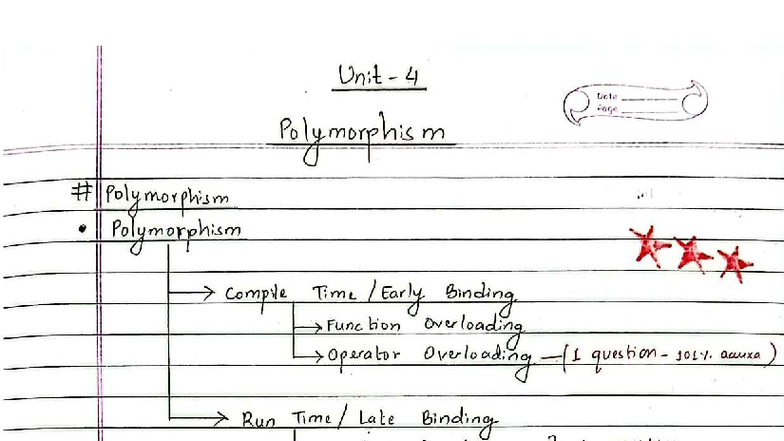 Unit - 4
Date
Page
Polymorphism
# Polymorphism
• Polymorphism
Compile Time / Early Binding
Function Overloading
Operator Overloading — (1 question - 101% aauxa)
Run Time / Late Binding